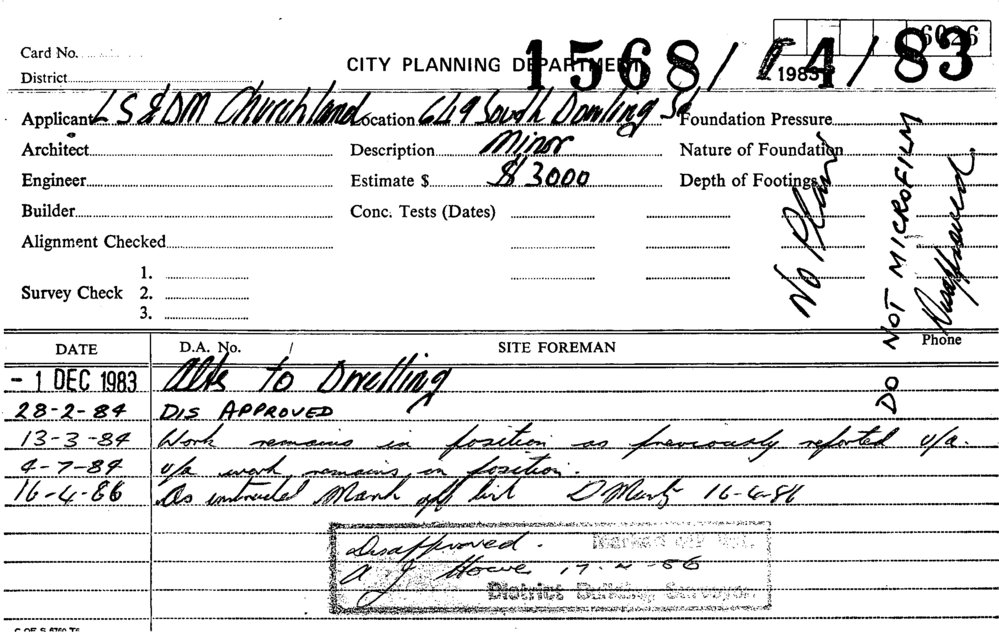 6026
Card No.
CITY PLANNING DEPARTMENT
1568/ /4/83
1983
District
Applicant L S & DM Churchland Location 649 South Dowling St Foundation Pressure
Architect Description Minor Nature of Foundation
Engineer Estimate $ $ 3000 Depth of Footings
Builder Conc. Tests (Dates)
Alignment Checked
1.
Survey Check 2.
3.
No Plan
DO NOT MICROFILM
Disapproved
Phone
DATE D.A. No. / SITE FOREMAN
- 1 DEC 1983 Alts to Dwelling
28-2-84 DIS APPROVED
13-3-84 Work remains in position as previously reported u/a.
4-7-84 u/a work remains in position.
16-4-86 As instructed Mark off list 16-4-86
Disapproved. Marked off list.
A J Howe 17-4-86
District Building Surveyor.